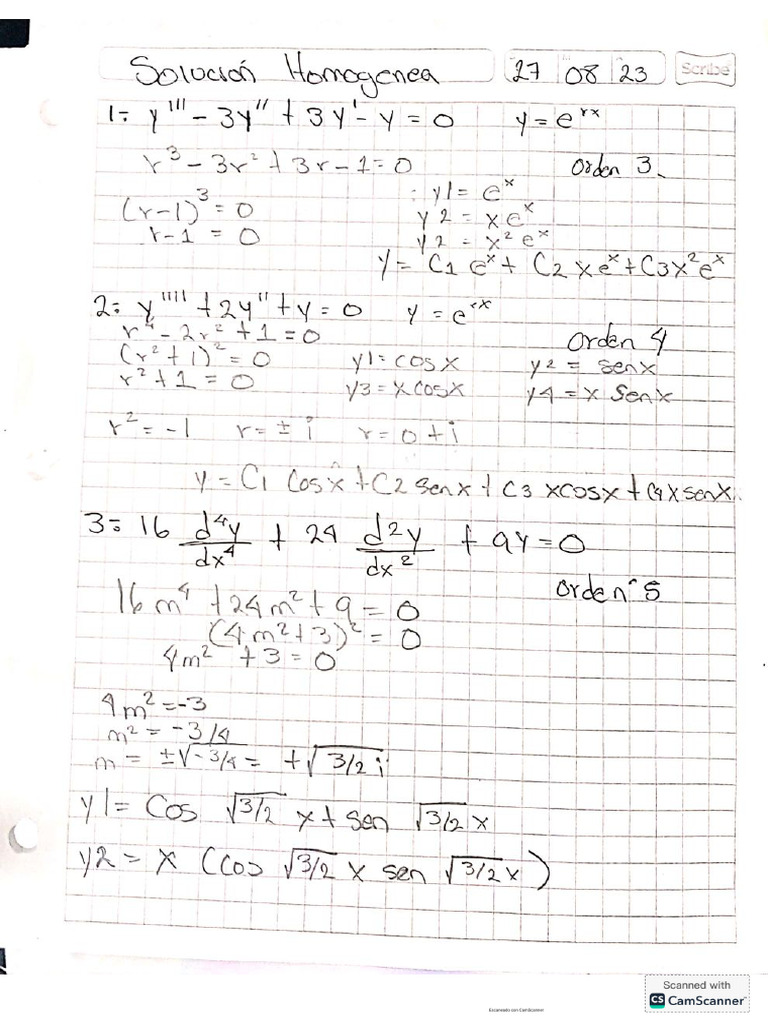 Solución Homogenea 27 08 23 Scribe
1= y''' - 3y'' + 3y' - y = 0 y = e^rx
r³ - 3r² + 3r - 1 = 0 Orden 3.
(r-1)³ = 0 : y1 = e^x
r-1 = 0 y2 = xe^x
y2 = x²e^x
y = C1 e^x + C2 xe^x + C3x²e^x
2= y'''' + 2y'' + y = 0 y = e^rx
r⁴ - 2r² + 1 = 0 Orden 4
(r² + 1)² = 0 y1 = cosx y2 = senx
r² + 1 = 0 y3 = x cosx y4 = x Senx
r² = -1 r = ± i r = 0 + i
y = C1 Cosx + C2 senx + C3 xcosx + C4xsenx.
3= 16 d⁴y/dx⁴ + 24 d²y/dx² + 9y = 0
Orden 5
16m⁴ + 24m² + 9 = 0
(4m² + 3)² = 0
4m² + 3 = 0
4m² = -3
m² = -3/4
m = ±√-3/4 = +√3/2 i
y1 = Cos √3/2 x + sen √3/2 x
y2 = x (cos √3/2 x sen √3/2 x)
Scanned with
CS CamScanner
Escaneado con CamScanner